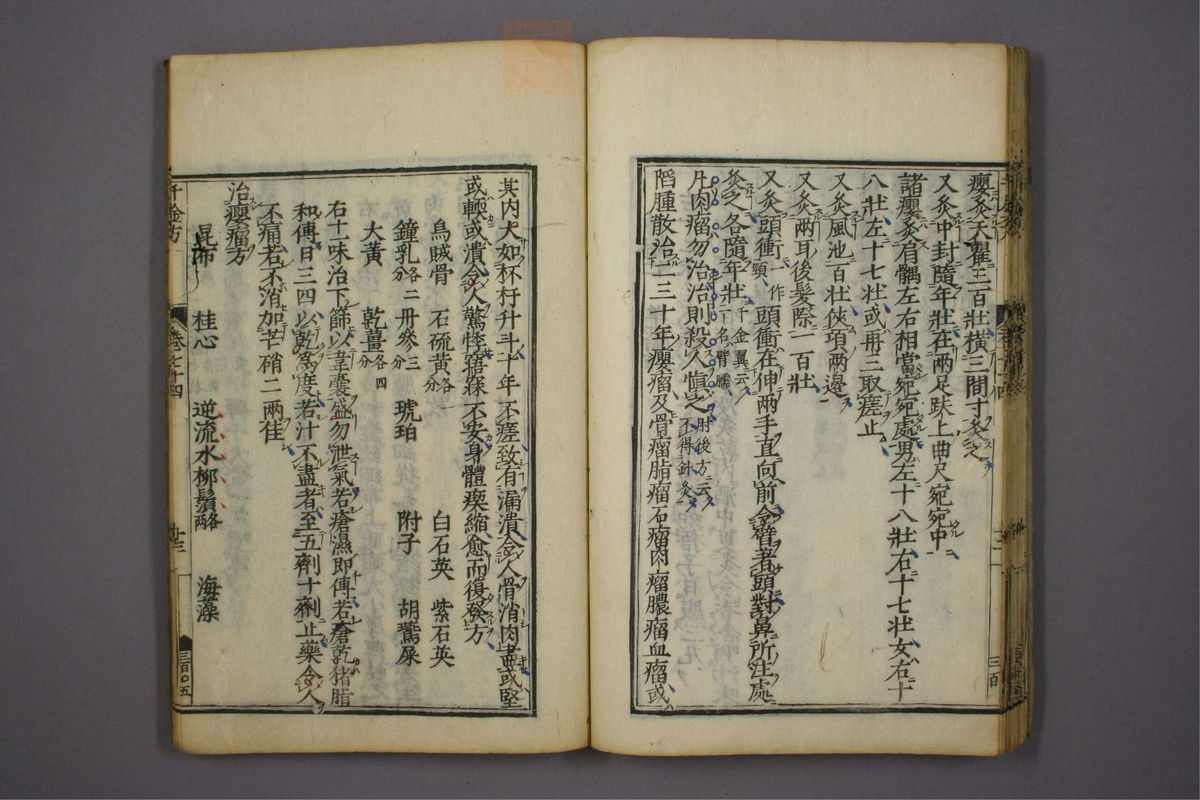 癭灸天瞿三百壯橫三間寸灸之
又灸中封隨年壯在兩足趺上曲尺宛宛中
諸癭灸肩髃左右相當宛宛處男左十八壯右十七壯女右十
八壯左十七壯或再三取瘥止
又灸風池百壯俠項兩邊
又灸兩耳後髮際一百壯
又灸頭衝一作頸衝頭衝在伸兩手直向前令臂著頭對鼻所注處
灸之各隨年壯千金翼云一名臂臑
凡肉瘤勿治治則殺人慎之肘後方云不得針灸
陷腫散治二三十年癭瘤及骨瘤脂瘤石瘤肉瘤膿瘤血瘤或
其內大如杯杅升斗十年不瘥致有漏潰令人骨消肉盡或堅
或輭或潰令人驚悸寤寐不安身體瘈縮愈而復發方
烏賊骨 石硫黃各一分 白石英 紫石英
鐘乳各二分 丹參三分 琥珀 附子 胡鷰屎
大黃 乾薑各四分
右十一味治下篩以韋囊盛勿泄氣若瘡濕即傅若瘡乾豬脂
和傅日三四以乾為度若汁不盡者至五劑十劑止藥令人
不痛若不消加芒硝二兩佳
治癭瘤方
昆布 桂心 逆流水柳鬚各一兩 海藻
千金方
卷七十四
三百〇五
三百